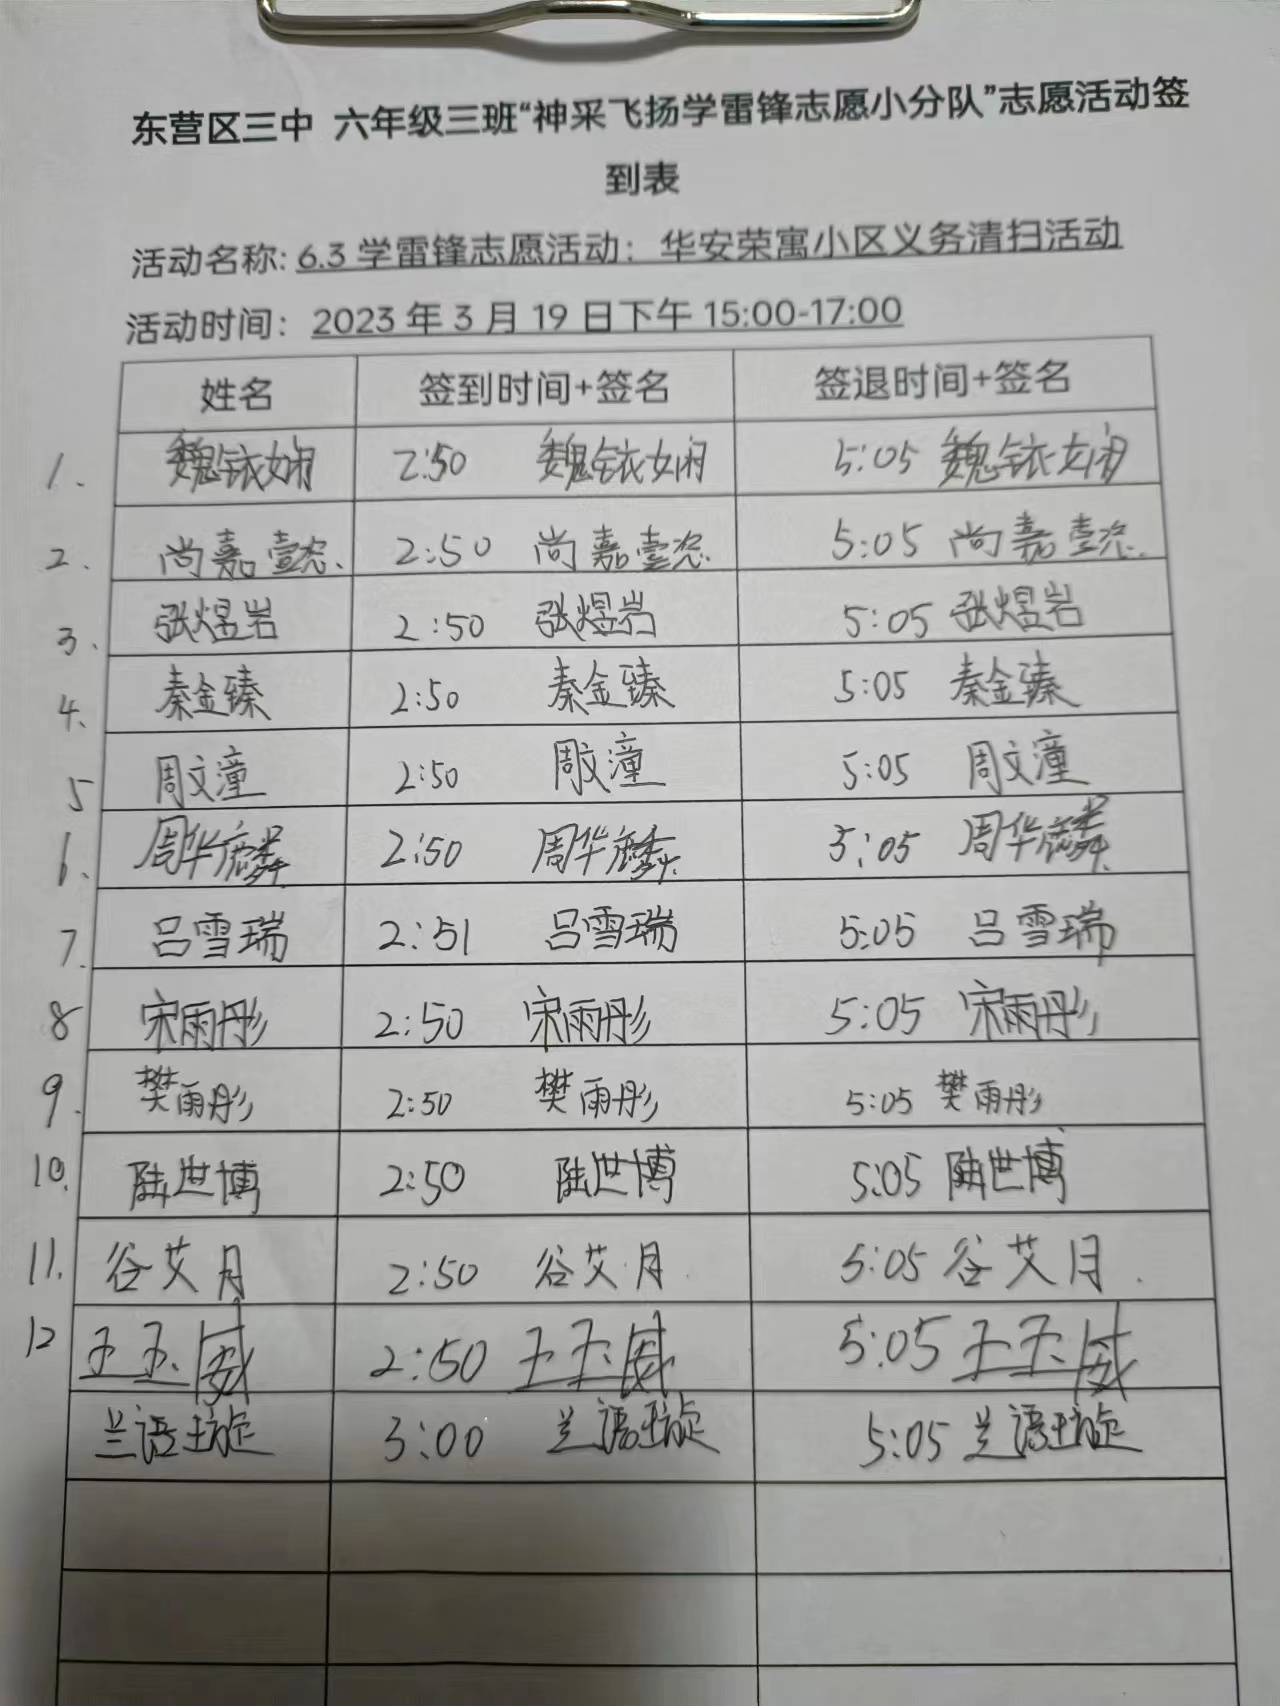 东营区三中 六年级三班“神采飞扬学雷锋志愿小分队”志愿活动签
到表
活动名称: 6.3 学雷锋志愿活动：华安荣寓小区义务清扫活动
活动时间：2023 年 3 月 19 日下午 15:00-17:00
姓名 签到时间+签名 签退时间+签名
1. 魏铱娴 2:50 魏铱娴 5:05 魏铱娴
2. 尚嘉懿 2:50 尚嘉懿 5:05 尚嘉懿
3. 张煜岩 2:50 张煜岩 5:05 张煜岩
4. 秦金臻 2:50 秦金臻 5:05 秦金臻
5 周文潼 2:50 周文潼 5:05 周文潼
6. 周华麟 2:50 周华麟 5:05 周华麟
7. 吕雪瑞 2:51 吕雪瑞 5:05 吕雪瑞
8 宋雨彤 2:50 宋雨彤 5:05 宋雨彤
9. 樊雨彤 2:50 樊雨彤 5:05 樊雨彤
10. 陆世博 2:50 陆世博 5:05 陆世博
11. 谷艾月 2:50 谷艾月 5:05 谷艾月.
12 王玉威 2:50 王玉威 5:05 王玉威
兰语璇 3:00 兰语璇 5:05 兰语璇